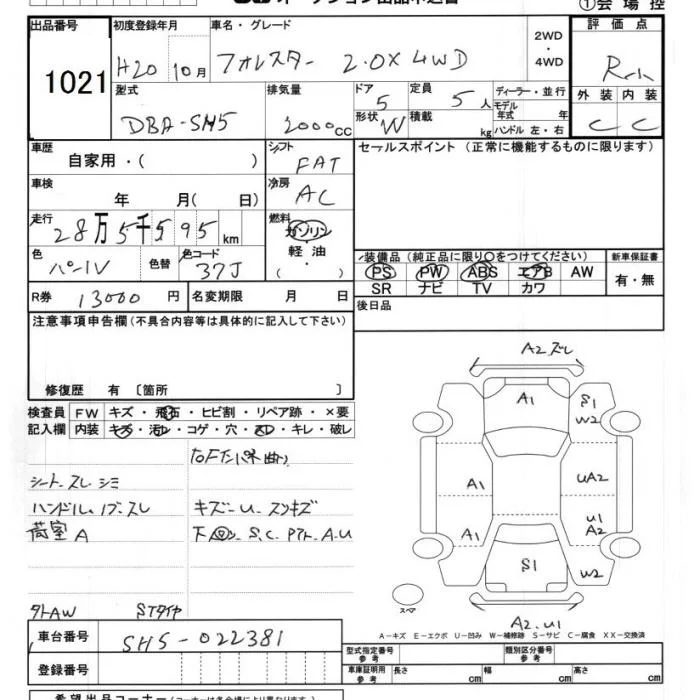 ①会場控
出品番号 初度登録年月 車名・グレード 2WD・4WD 評価点
1021 H20 10月 フォレスター 2.0X 4WD
型式 排気量 ドア 定員 ディーラー・並行 外装 内装
DBA-SH5 2000cc 5 5人 モデル年式 年 C C
形状 W 積載 kg ハンドル 左・右
車歴 シフト セールスポイント (正常に機能するものに限ります)
自家用・( ) FAT
車検 冷房
年 月( 日) AC
走行 燃料
28万5千595km ガソリン
軽油
・
( )
色 色替 色コード 装備品 (純正品に限り○をつけてください) 新車保証書
パール 37J PS PW ABS エアB AW 有・無
SR ナビ TV カワ
R券 13000円 名変期限 月 日 後日品
注意事項申告欄 (不具合内容等は具体的に記入して下さい)
修復歴 有 〔箇所 〕
検査員 FW キズ・飛石・ヒビ割・リペア跡・×要
記入欄 内装 キズ・汚レ・コゲ・穴・スレ・キレ・破レ
シート スレ シミ
ハンドル、ノブ スレ キズ-U
荷室A
社外AW STタイヤ
A2 ズレ
A1 S1
W2
A1 UA2
A1 U1
A2
S1 W2
スペア
A2.U1
A-キズ E-エクボ U-凹み W-補修跡 S-サビ C-腐食 XX-交換済
車台番号 SH5-022381
登録番号
型式指定番号 参考 類別区分番号 参考
車庫証明用 参考 長さ cm 幅 cm 高さ cm